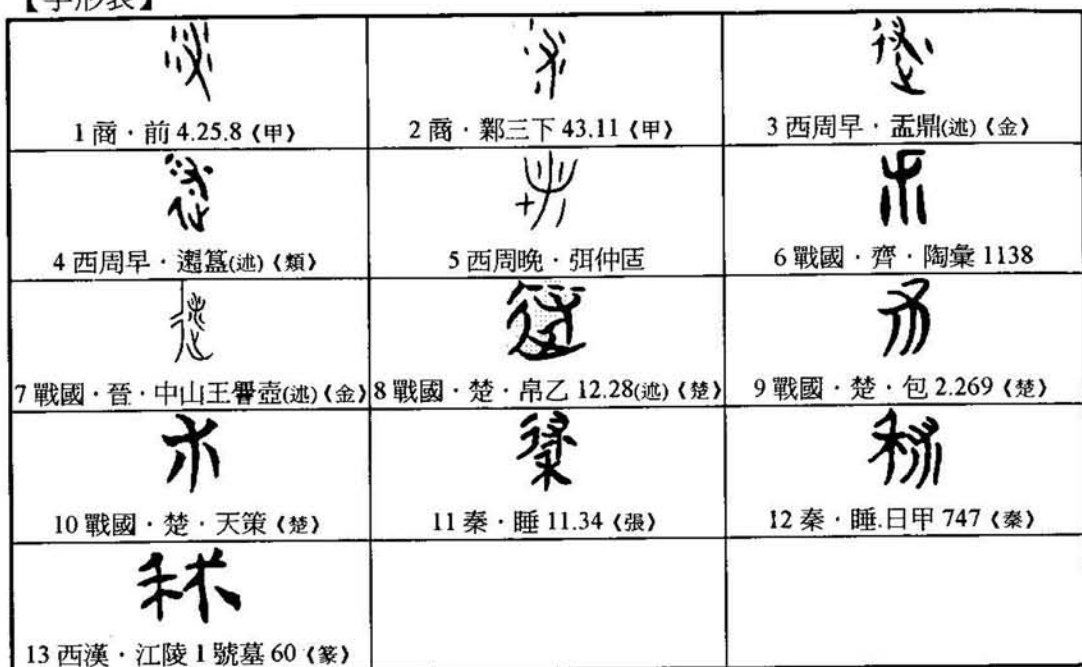 【字形表】
1 商．前 4.25.8《甲》
2 商．鄴三下 43.11《甲》
3 西周早．盂鼎(述)《金》
4 西周早．𬨎簋(述)《類》
5 西周晚．弭仲匜
6 戰國．齊．陶彙 1138
7 戰國．晉．中山王譽壺(述)《金》
8 戰國．楚．帛乙 12.28(述)《楚》
9 戰國．楚．包 2.269《楚》
10 戰國．楚．天策《楚》
11 秦．睡 11.34《張》
12 秦．睡.日甲 747《秦》
13 西漢．江陵 1 號墓 60《篆》